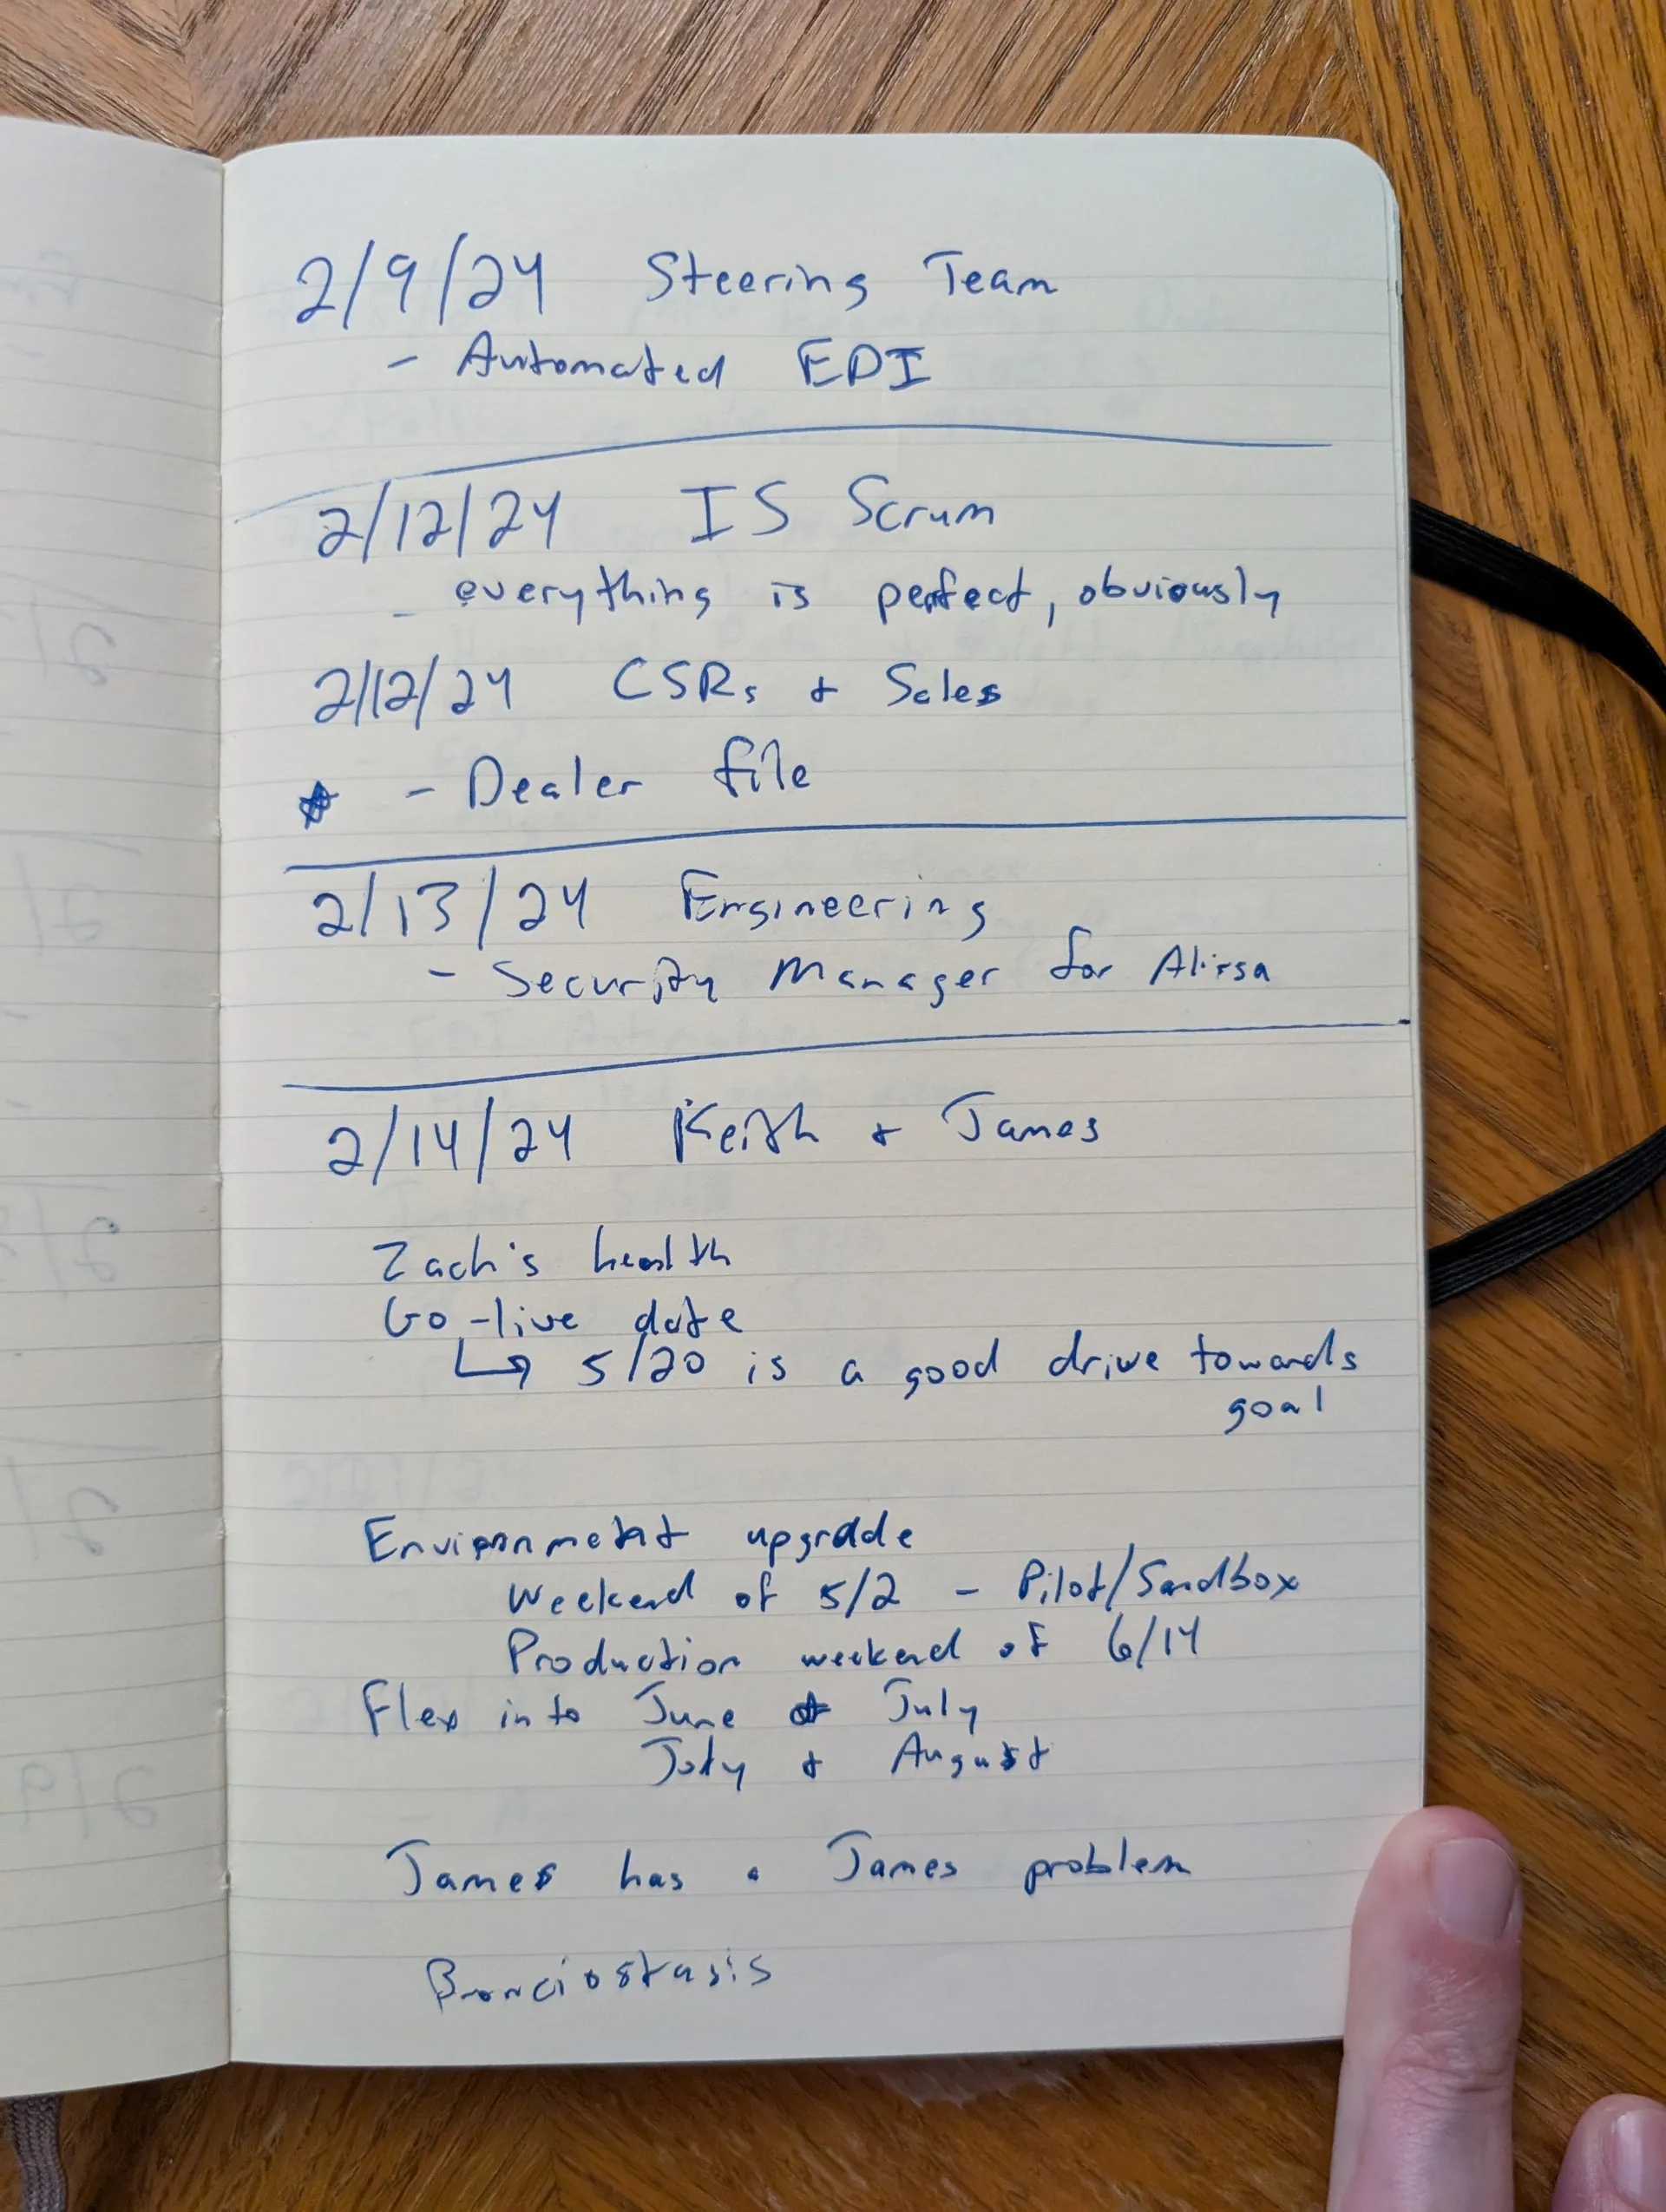 2/9/24 Steering Team
- Automated EDI
2/12/24 IS Scrum
- everything is perfect, obviously
2/12/24 CSRs + Sales
☆ - Dealer file
2/13/24 Engineering
- Security Manager for Alissa
2/14/24 Keith + James
Zach's health
Go-live date
↳ 5/20 is a good drive towards
goal
Environment upgrade
Weekend of 5/2 - Pilot/Sandbox
Production weekend of 6/14
Flex into June + July
July + August
James has a James problem